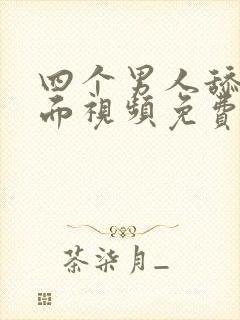 四个男人舔
而视频免费
茶柒月_